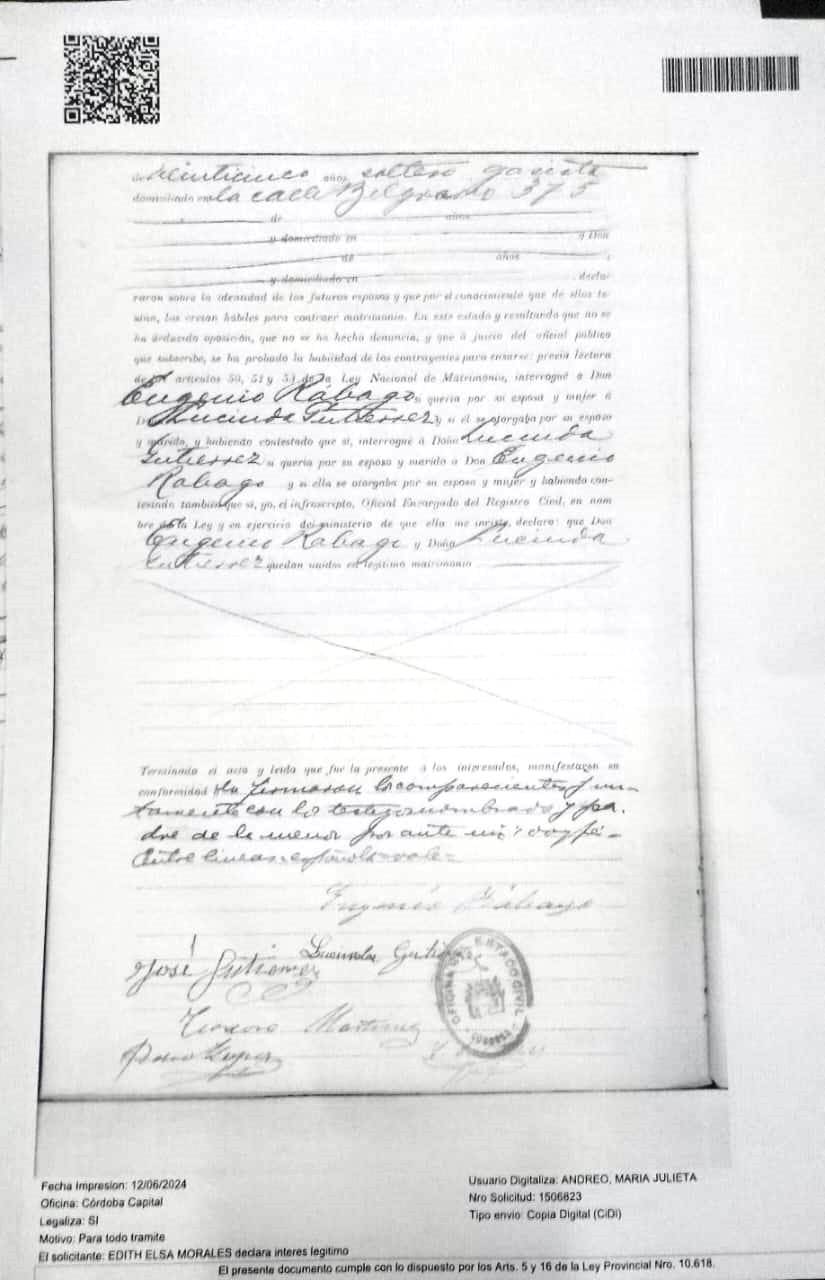 de veinticinco años, soltero
domiciliado en la calle Belgrano 375
de años
y domiciliado en y Don
de años
y domiciliado en decla-
raron sobre la identidad de los futuros esposos y que por el conocimiento que de ellos te-
nían, los creían hábiles para contraer matrimonio. En este estado y resultando que no se
ha deducido oposición, que no se ha hecho denuncia, y que á juicio del oficial público
que subscribe, se ha probado la habilidad de los contrayentes para casarse: previa lectura
de los artículos 50, 51 y 53 de la Ley Nacional de Matrimonio, interrogué á Don
Eugenio Rábago, si quería por su esposa y mujer á
Da Lucinda Gutierrez y si él se otorgaba por su esposo
y marido, y habiendo contestado que sí, interrogué á Doña Lucinda
Gutierrez si quería por su esposo y marido á Don Eugenio
Rabago y si ella se otorgaba por su esposa y mujer y habiendo con-
testado también que sí, yo, el infrascripto, Oficial Encargado del Registro Civil, en nom
bre de la Ley y en ejercicio del ministerio de que ella me inviste, declaro: que Don
Eugenio Rabago y Doña Lucinda
Gutierrez quedan unidos en legítimo matrimonio
Terminado el acto y leída que fue la presente á los interesados, manifestaron su
conformidad la firmaron los comparecientes jun-
tamente con los testigos nombrados y pa-
dre de la menor por ante mi: doy fé-
Entre lineas: española-vale-
Eugenio Rábago
Lucinda Gutierrez
José Gutierrez
Teodoro Martinez
OFICINA DEL ESTADO CIVIL
CORDOBA
Fecha Impresion: 12/06/2024
Oficina: Córdoba Capital
Legaliza: SI
Motivo: Para todo tramite
El solicitante: EDITH ELSA MORALES declara interes legitimo
Usuario Digitaliza: ANDREO, MARIA JULIETA
Nro Solicitud: 1506823
Tipo envio: Copia Digital (CiDi)
El presente documento cumple con lo dispuesto por los Arts. 5 y 16 de la Ley Provincial Nro. 10.618.